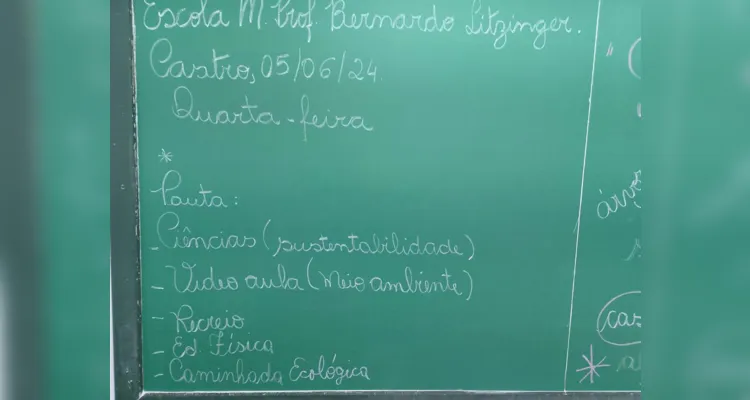 Escola M. Prof. Bernardo Litzinger.
Castro, 05/06/24
Quarta-feira
*
Pauta:
- Ciências (sustentabilidade)
- Video aula (Meio ambiente)
- Recreio
- Ed. Física
- Caminhada Ecológica